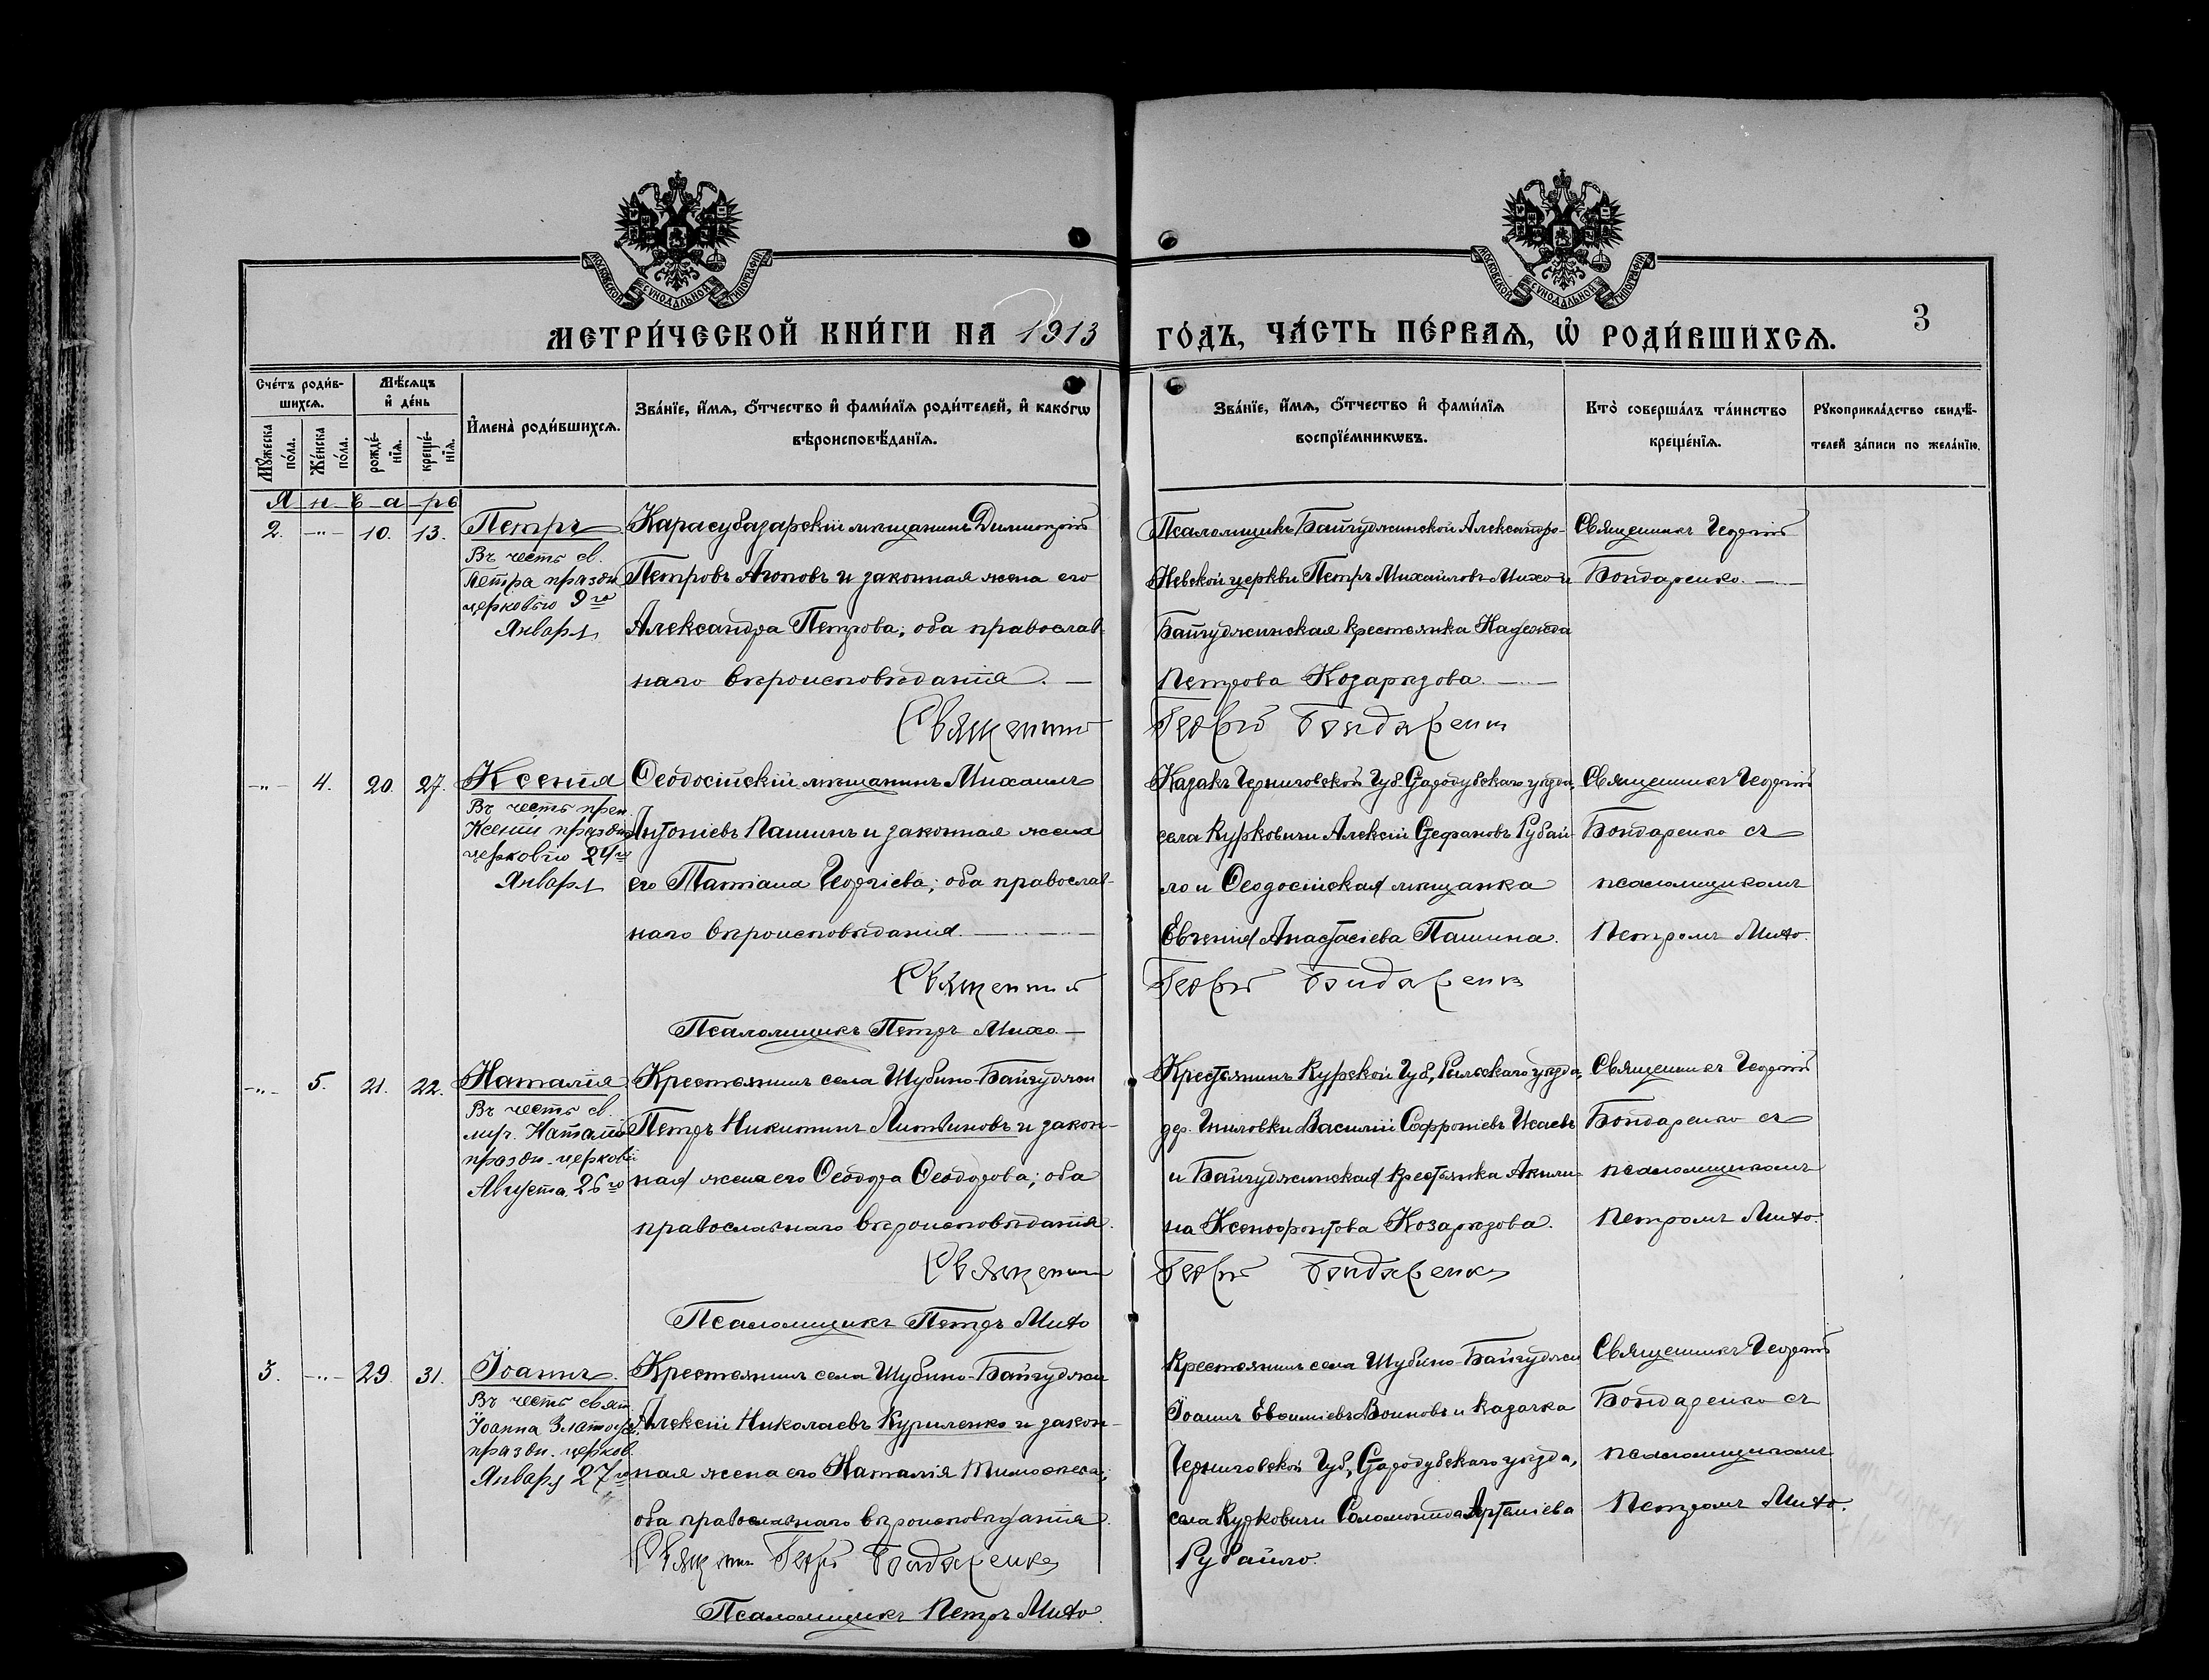 МОСКОВСКОЙ СУНОДАЛЬНОЙ ТИПОГРАФІИ
МОСКОВСКОЙ СУНОДАЛЬНОЙ ТИПОГРАФІИ
МЕТРИ́ЧЕСКОЙ КНИ́ГИ НА 1913
ГО́ДЪ, ЧА́СТЬ ПЕ́РВАѦ, Ѡ҆ РОДИ́ВШИХСѦ.
3
Сче́тъ роди́в-
шихсѧ.
Мꙋ́жеска по́ла.
Же́нска по́ла.
Мѣ́сѧцъ
и҆ де́нь
рожде́-
нїѧ.
креще́-
нїѧ.
И҆мена̀ роди́вшихсѧ.
Зва́нїе, и҆́мѧ, ѻ҆́тчество и҆ фами́лїѧ роди́телей, и҆ како́гѡ
вѣроисповѣ́данїѧ.
Зва́нїе, и҆́мѧ, ѻ҆́тчество и҆ фами́лїѧ
воспрїе́мникѡвъ.
Кто̀ соверша́лъ та́инство
креще́нїѧ.
Рꙋкоприкла́дство свидѣ́-
телей за́писи по жела́нїю.
Январь
2. -"- 10. 13.
Петръ
Въ честь св.
Петра праздн.
церковью 9го
Января
Карасубазарскій мѣщанинъ Димитрій
Петровъ Агоповъ и законная жена его
Александра Петрова; оба православ-
наго вѣроисповѣданія. —
Псаломщикъ Байгуджинской Александро-
Невской церкви Петръ Михайловъ Михо и
Байгуджинская крестьянка Надежда
Петрова Козарезова. —
Священникъ Георгій
Бондаренко. —
Священник Георгій Бондаренко
-"- 4. 20. 27.
Ксенія
Въ честь преп.
Ксеніи праздн.
церковью 24го
Января
Ѳеодосійскій мѣщанинъ Михаилъ
Антоніевъ Пашинъ и законная жена
его Татіана Георгіева; оба православ-
наго вѣроисповѣданія. —
Казакъ Черниговской Губ. Стародубскаго уѣзда,
села Курковичи Алексій Стефановъ Рубай-
ло и Ѳеодосійская мѣщанка
Евгенія Анастасіева Пашина.
Священникъ Георгій
Бондаренко съ
псаломщикомъ
Петромъ Михо.
Священник Георгій Бондаренко
Псаломщикъ Петръ Михо. —
-"- 5. 21. 22.
Наталія
Въ честь св.
муч. Наталіи
праздн. церковью
Августа 26го
Крестьянинъ села Шубино-Байгуджи
Петръ Никитинъ Литвиновъ и закон-
ная жена его Ѳеодора Ѳеодорова; оба
православнаго вѣроисповѣданія.
Крестьянинъ Курской Губ., Рыльскаго уѣзда,
Василій Софроніевъ Исаевъ
и Байгуджинская крестьянка Акили-
на Ксенофонтова Козарезова.
Священникъ Георгій
Бондаренко съ
псаломщикомъ
Петромъ Михо.
Священник Георгій Бондаренко
Псаломщикъ Петръ Михо
3. -"- 29. 31.
Іоаннъ
Въ честь свят.
Іоанна Златоуст.
праздн. церков.
Января 27го
Крестьянинъ села Шубино-Байгуджи
Алексій Николаевъ Куриленко и закон-
ная жена его Наталія Тимоѳеева;
оба православнаго вѣроисповѣданія.
Крестьянинъ села Шубино-Байгуджи
Іоаннъ Евѳиміевъ Воиновъ и казачка
Черниговской Губ., Стародубскаго уѣзда,
села Курковичи Соломонида Артеміева
Рубайло.
Священникъ Георгій
Бондаренко съ
псаломщикомъ
Петромъ Михо.
Священник Георгій Бондаренко
Псаломщикъ Петръ Михо.